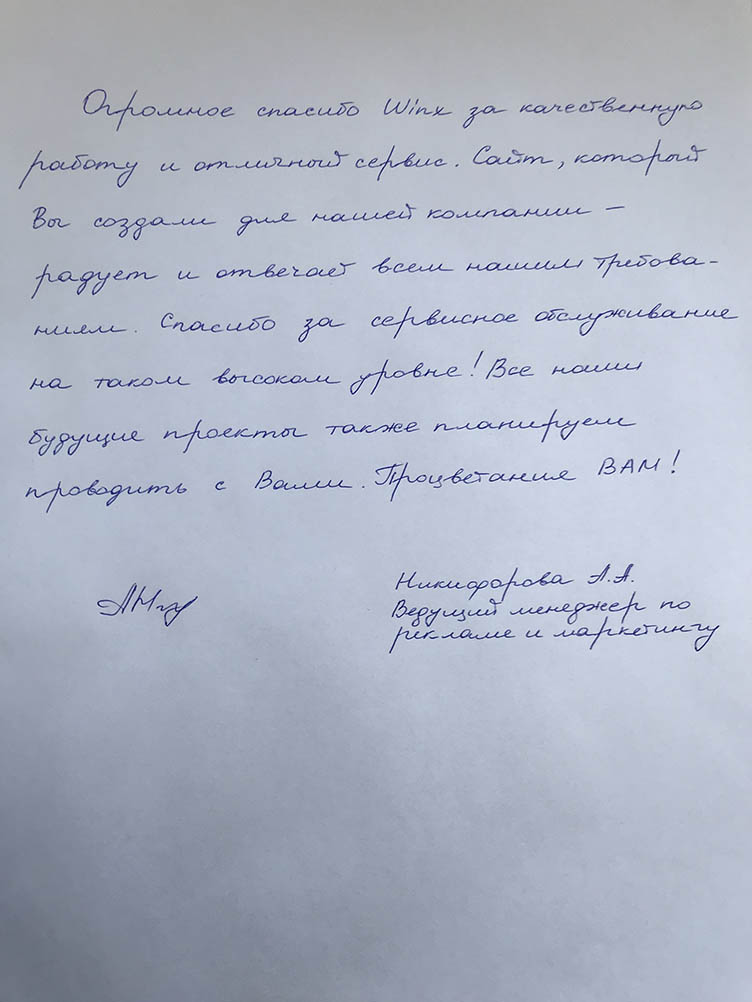 Огромное спасибо Winx за качественную
работу и отличный сервис. Сайт, который
Вы создали для нашей компании –
радует и отвечает всем нашим требова-
ниям. Спасибо за сервисное обслуживание
на таком высоком уровне! Все наши
будущие проекты также планируем
проводить с Вами. Процветания ВАМ!
Никифорова А.А.
Ведущий менеджер по
рекламе и маркетингу